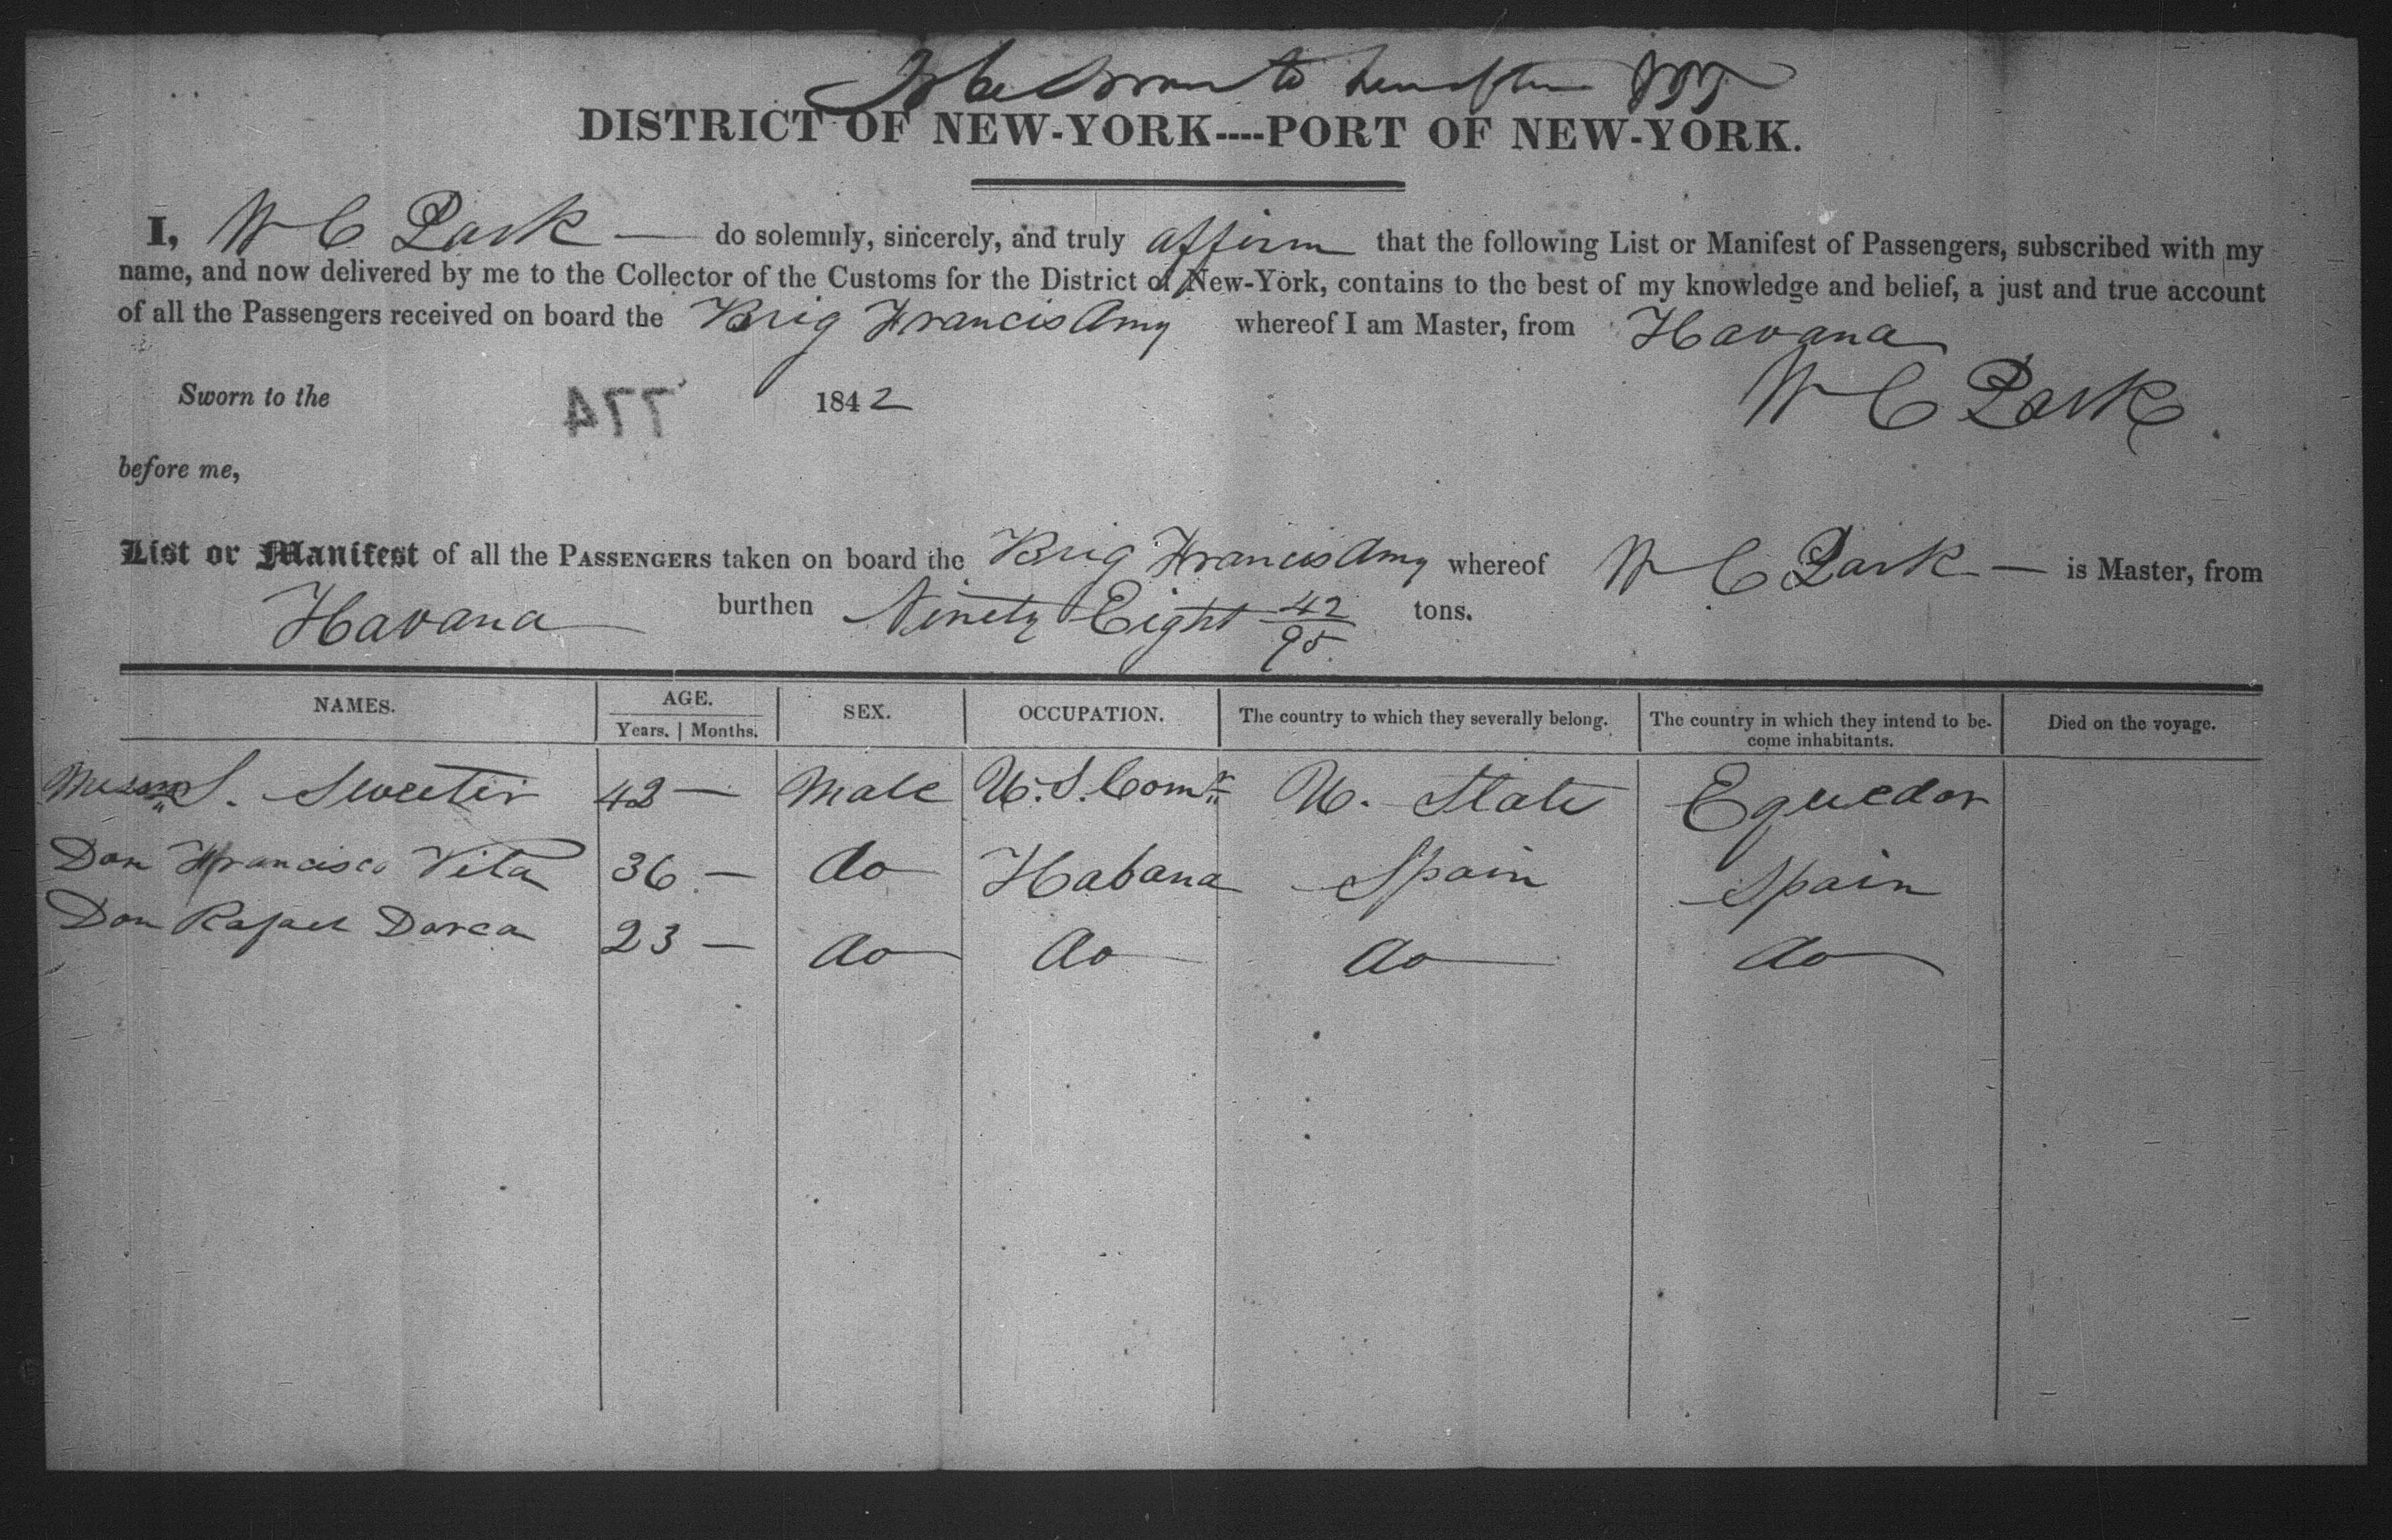 to hereafter
DISTRICT OF NEW-YORK----PORT OF NEW-YORK.
I, W C Park — do solemnly, sincerely, and truly affirm that the following List or Manifest of Passengers, subscribed with my
name, and now delivered by me to the Collector of the Customs for the District of New-York, contains to the best of my knowledge and belief, a just and true account
of all the Passengers received on board the Brig Francis Amy whereof I am Master, from Havana
Sworn to the 774 1842 W C Park
before me,
List or Manifest of all the PASSENGERS taken on board the Brig Francis Amy whereof W C Park — is Master, from
Havana burthen Ninety Eight 42/95 tons.
NAMES. AGE. Years. | Months. SEX. OCCUPATION. The country to which they severally belong. The country in which they intend to be-come inhabitants. Died on the voyage.
S. Sweetir 42 — Male U. S. Com U. State Equedor
Don Francisco Vila 36 — do Habana Spain Spain
Don Rafael Dorca 23 — do do do do